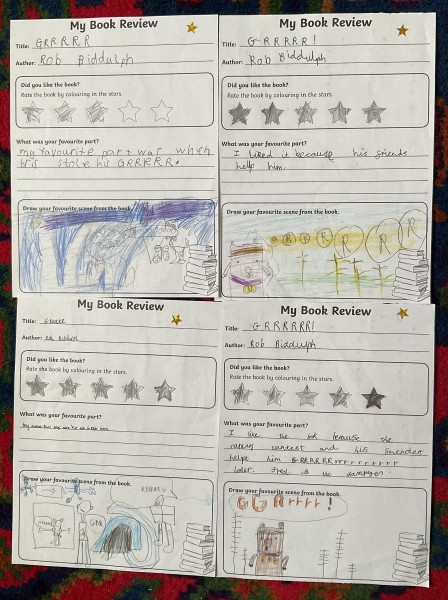 My Book Review
Title: GRRRRR
Author: Rob Biddulph
Did you like the book?
Rate the book by colouring in the stars.
What was your favourite part?
my favourite part was when
stole his GRRRRR.
Draw your favourite scene from the book.
My Book Review
Title: GRRRRR!
Author: Rob Biddulph
Did you like the book?
Rate the book by colouring in the stars.
What was your favourite part?
I liked it because his friends
help him.
Draw your favourite scene from the book.
R R R R R R
My Book Review
Title: GRRRRR
Author: Rob Biddulph
Did you like the book?
Rate the book by colouring in the stars.
What was your favourite part?
Draw your favourite scene from the book.
My Book Review
Title: GRRRRRR!
Author: Rob Biddulph
Did you like the book?
Rate the book by colouring in the stars.
What was your favourite part?
I like the because the
contest and his
helps him GRRRRRrrrrrrrrrr
later. Fred is the
Draw your favourite scene from the book.
GGRrrrr!